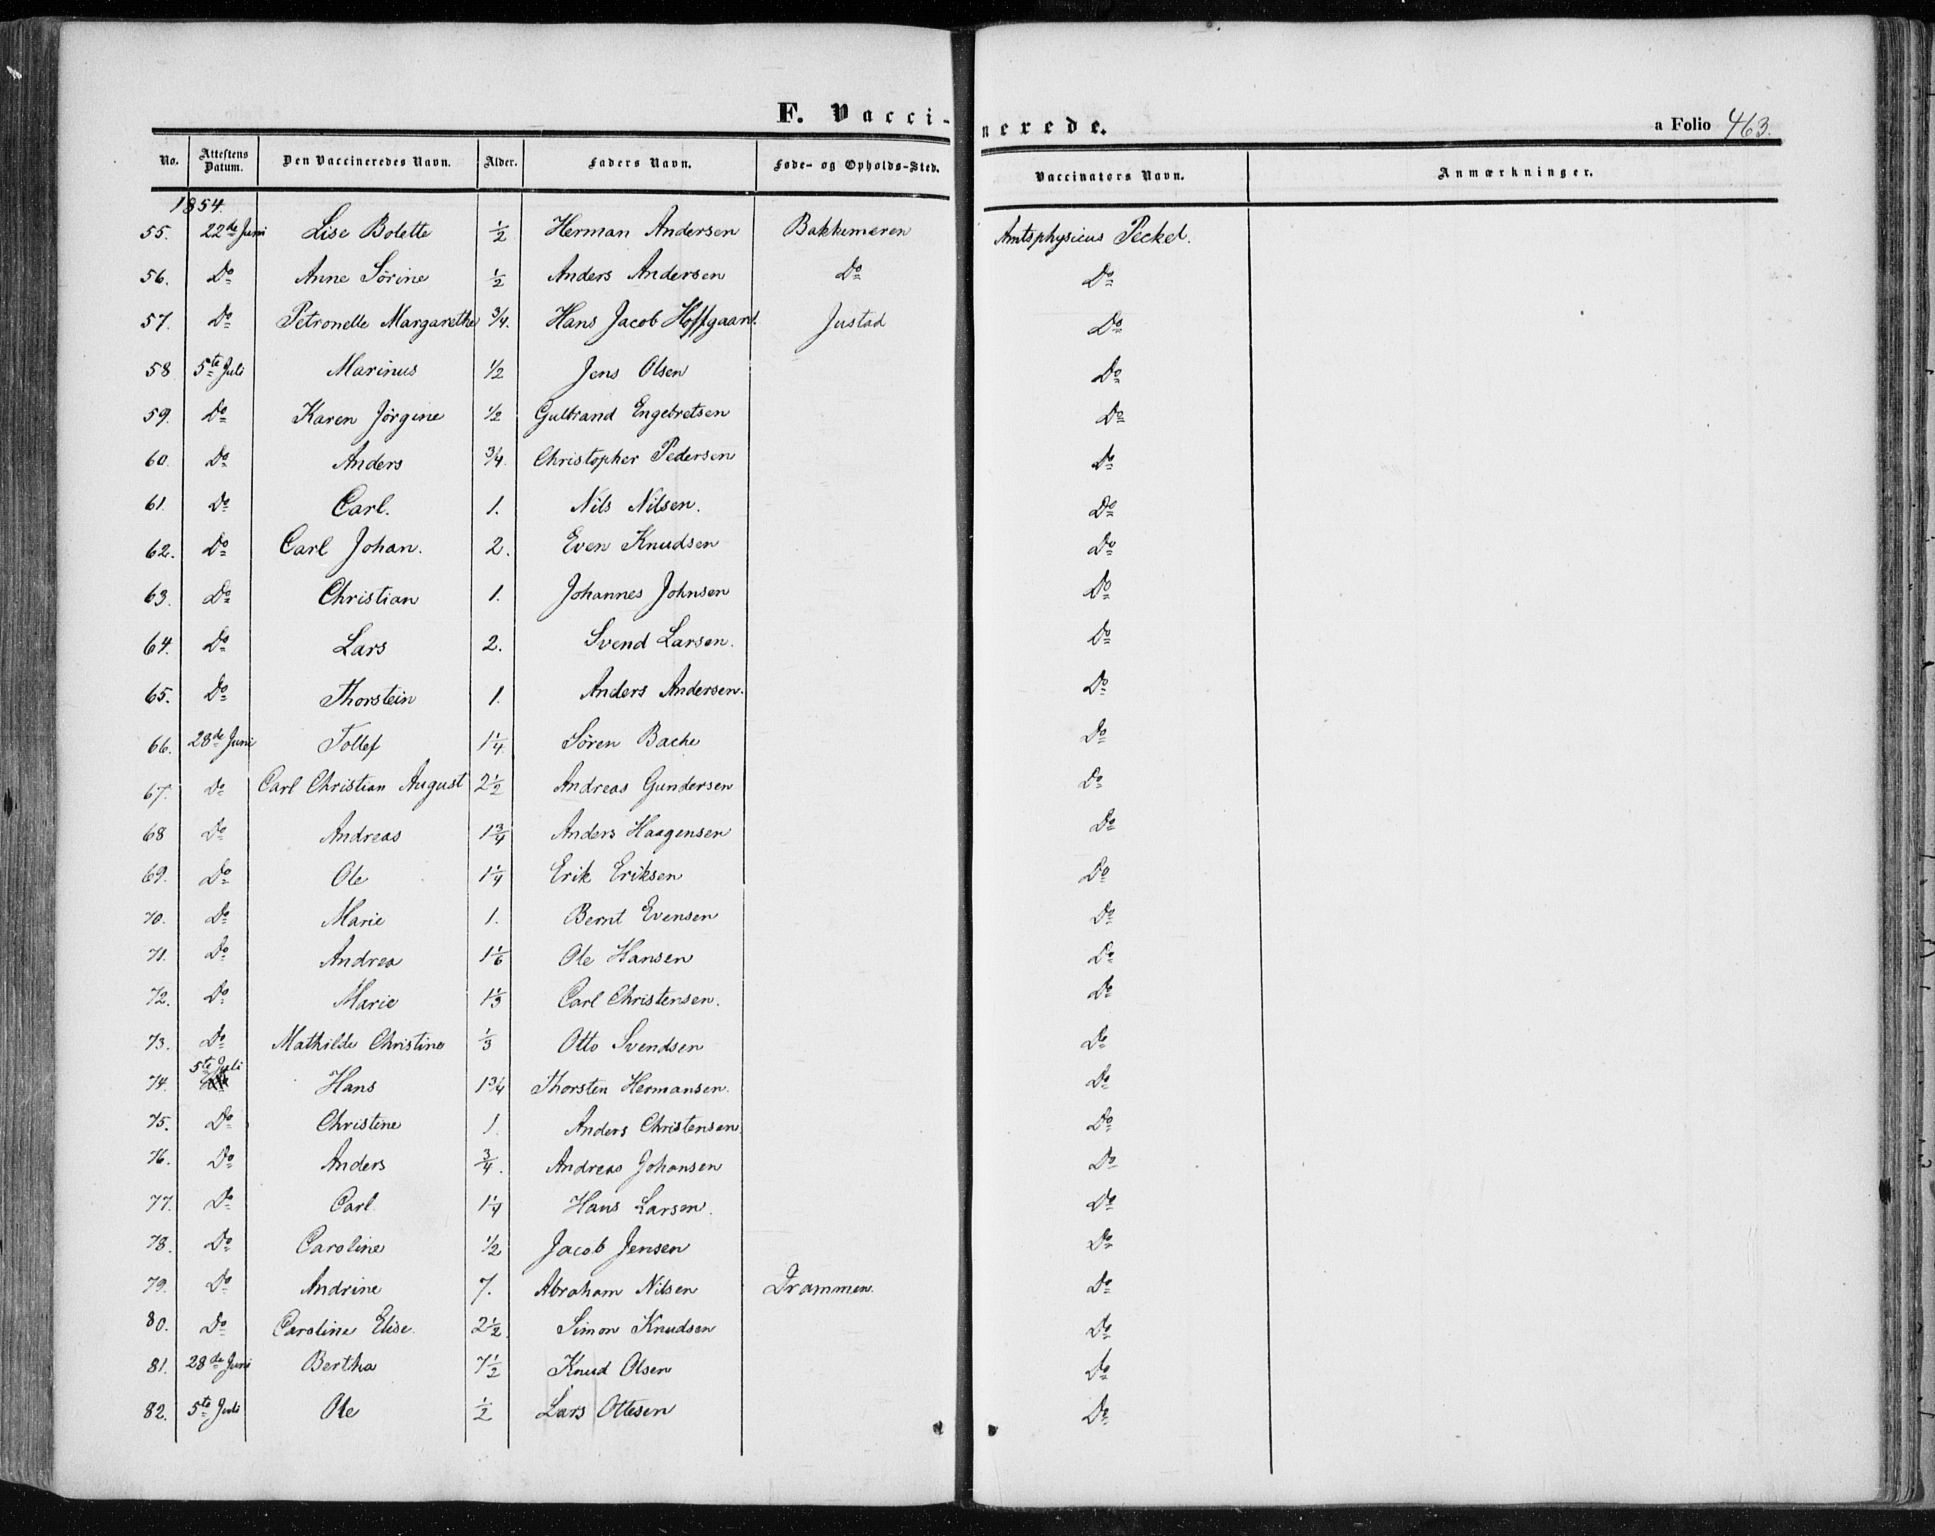 F. Vacci-nerede.
a Folio 463.
No. Attestens Datum. Den Vaccineredes Navn. Alder. Faders Navn. Føde- og Opholds-Sted. Vaccinators Navn. Anmærkninger.
1854.
55. 22de Juni Lise Bolette 1/2 Herman Andersen Bakkemeren Amtsphysicus Peckel.
56. Do Anne Sørine 1/2 Anders Andersen Do Do
57. Do Petronelle Margarethe 3/4. Hans Jacob Hoffgaard. Justad Do
58 5te Juli Marinus 1/2 Jens Olsen Do
59. Do Karen Jørgine 1/2 Gulbrand Engebretsen Do
60. Do Anders 3/4. Christopher Pedersen Do
61. Do Carl. 1. Nils Nilsen. Do
62. Do Carl Johan. 2. Even Knudsen Do
63. Do Christian 1. Johannes Johnsen Do
64. Do Lars 2. Svend Larsen. Do
65. Do Thorstein 1. Anders Andersen. Do
66. 28de Juni Tollef 1 1/4 Søren Bache Do
67. Do Carl Christian August 2 1/2 Andreas Gundersen Do
68 Do Andreas 1 3/4 Anders Haagensen Do
69. Do Ole 1 1/4 Erik Eriksen Do
70. Do Marie 1. Bernt Evensen Do
71. Do Andrea 1 1/6 Ole Hansen Do
72. Do Marie 1 1/3 Carl Christensen. Do
73. Do Mathilde Christine 1/3 Otto Svendsen Do
74. 5te Juli Hans 1 3/4 Thorsten Hermansen. Do
75. Do Christine 1. Anders Christensen. Do
76. Do Anders 3/4. Andreas Johansen Do
77. Do Carl 1 1/4 Hans Larsen. Do
78. Do Caroline 1/2 Jacob Jensen Do
79. Do Andrine 7. Abraham Nilsen Drammen. Do
80. Do Caroline Elise. 2 1/2. Simon Knudsen Do
81. 28de Juni Bertha 7 1/2 Knud Olsen Do
82. 5te Juli Ole 1/2 Lars Ottesen Do